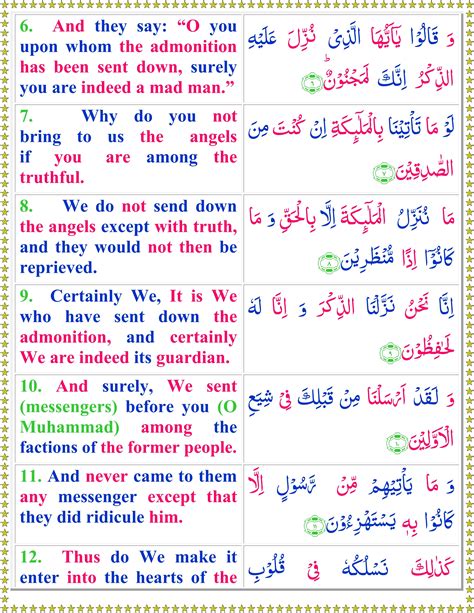 6. And they say: “O you
upon whom the admonition
has been sent down, surely
you are indeed a mad man.”
وَ قَالُوْا يٰۤاَيُّهَا الَّذِىْ نُزِّلَ عَلَيْهِ
الذِّكْرُ اِنَّكَ لَمَجْنُوْنٌؕ ۝۶
7. Why do you not
bring to us the angels
if you are among the
truthful.
لَوْ مَا تَاْتِيْنَا بِالْمَلٰٓٮِٕكَةِ اِنْ كُنْتَ مِنَ
الصّٰدِقِيْنَ ۝۷
8. We do not send down
the angels except with truth,
and they would not then be
reprieved.
مَا نُنَزِّلُ الْمَلٰٓٮِٕكَةَ اِلَّا بِالْحَقِّ وَ مَا
كَانُوْۤا اِذًا مُّنْظَرِيْنَ ۝۸
9. Certainly We, It is We
who have sent down the
admonition, and certainly
We are indeed its guardian.
اِنَّا نَحْنُ نَزَّلْنَا الذِّكْرَ وَ اِنَّا لَهٗ
لَحٰفِظُوْنَ ۝۹
10. And surely, We sent
(messengers) before you (O
Muhammad) among the
factions of the former people.
وَ لَقَدْ اَرْسَلْنَا مِنْ قَبْلِكَ فِىْ شِيَعِ
الْاَوَّلِيْنَ ۝۱۰
11. And never came to them
any messenger except that
they did ridicule him.
وَ مَا يَاْتِيْهِمْ مِّنْ رَّسُوْلٍ اِلَّا
كَانُوْا بِهٖ يَسْتَهْزِءُوْنَ ۝۱۱
12. Thus do We make it
enter into the hearts of the
كَذٰلِكَ نَسْلُكُهٗ فِىْ قُلُوْبِ